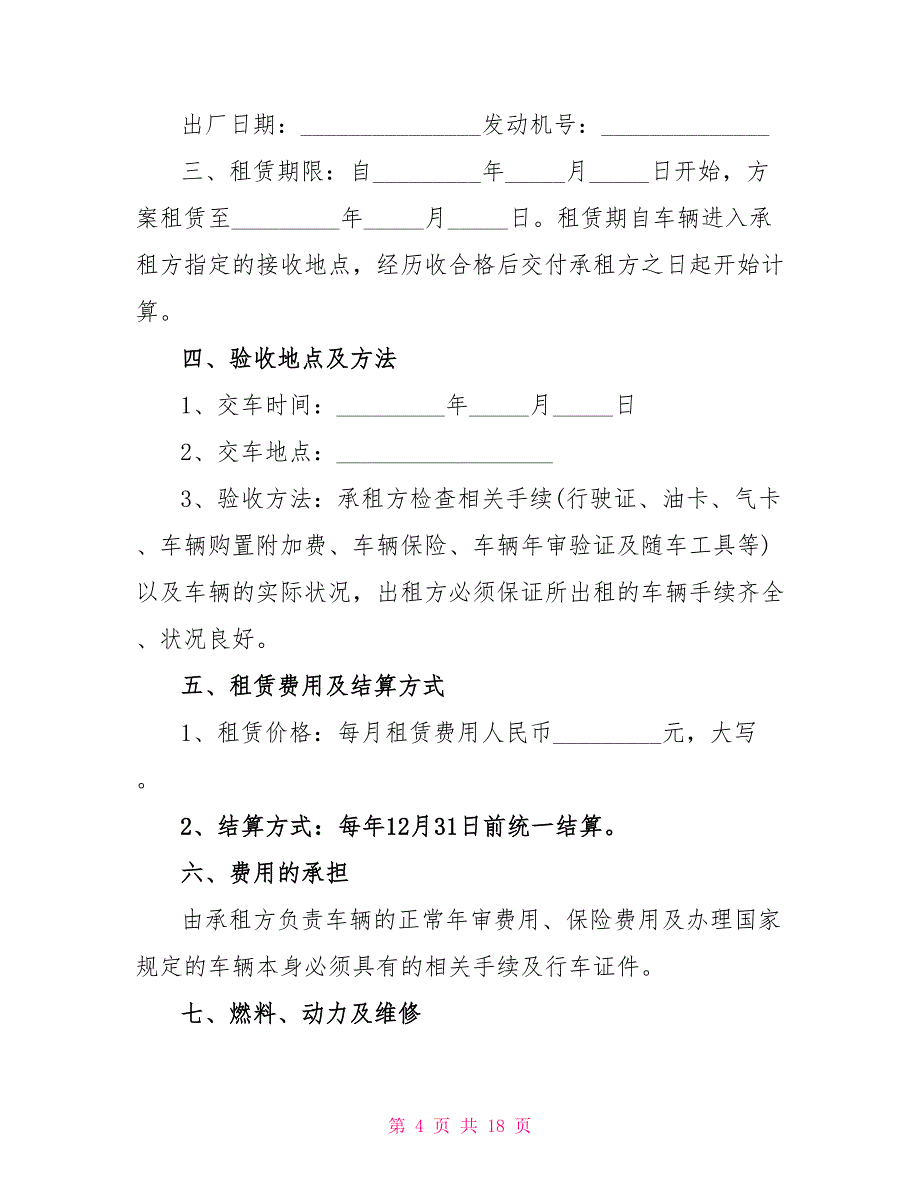 出厂日期：_______________发动机号：______________
三、租赁期限：自_________年_____月_____日开始，方
案租赁至_________年_____月_____日。租赁期自车辆进入承
租方指定的接收地点，经历收合格后交付承租方之日起开始计
算。
四、验收地点及方法
1、交车时间：_________年_____月_____日
2、交车地点：__________________
3、验收方法：承租方检查相关手续(行驶证、油卡、气卡
、车辆购置附加费、车辆保险、车辆年审验证及随车工具等)
以及车辆的实际状况，出租方必须保证所出租的车辆手续齐全
、状况良好。
五、租赁费用及结算方式
1、租赁价格：每月租赁费用人民币_________元，大写
。
2、结算方式：每年12月31日前统一结算。
六、费用的承担
由承租方负责车辆的正常年审费用、保险费用及办理国家
规定的车辆本身必须具有的相关手续及行车证件。
七、燃料、动力及维修
第 4 页 共 18 页